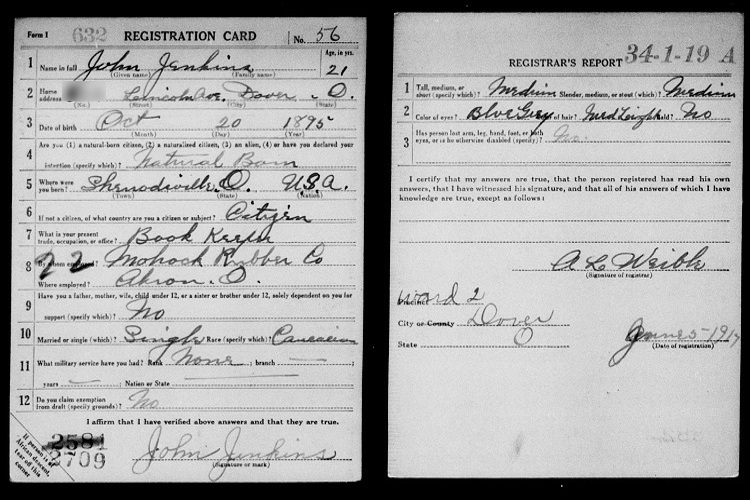 Form 1 632 REGISTRATION CARD No. 56
Age, in yrs.
1 Name in full John Jenkins 21
(Given name) (Family name)
2 Home address Lincoln Ave, Dover, O.
(No.) (Street) (City) (State)
3 Date of birth Oct 20 1895
(Month) (Day) (Year)
4 Are you (1) a natural-born citizen, (2) a naturalized citizen, (3) an alien, (4) or have you declared your
intention (specify which)? Natural Born
5 Where were you born? Sherodsville, O. U.S.A.
(Town) (State) (Nation)
6 If not a citizen, of what country are you a citizen or subject? Citizen
7 What is your present trade, occupation, or office? Book Keeper
8 By whom employed? Mohock Rubber Co
22
Where employed? Akron. O.
9 Have you a father, mother, wife, child under 12, or a sister or brother under 12, solely dependent on you for
support (specify which)? No
10 Married or single (which)? Single Race (specify which)? Caucasian
11 What military service have you had? Rank None ; branch —
years — ; Nation or State —
12 Do you claim exemption from draft (specify grounds)? No
I affirm that I have verified above answers and that they are true.
2581
2709
John Jenkins
(Signature or mark)
If person is of African descent, tear off this corner
REGISTRAR'S REPORT 34-1-19 A
1 Tall, medium, or short (specify which)? Medium Slender, medium, or stout (which)? Medium
2 Color of eyes? Blue Grey of hair? Med Light Bald? No
3 Has person lost arm, leg, hand, foot, or both eyes, or is he otherwise disabled (specify)? No.
I certify that my answers are true, that the person registered has read his own
answers, that I have witnessed his signature, and that all of his answers of which I have
knowledge are true, except as follows:
(Signature of registrar)
Precinct Ward 2
City or County Dover
State O
June 5-1917
(Date of registration)